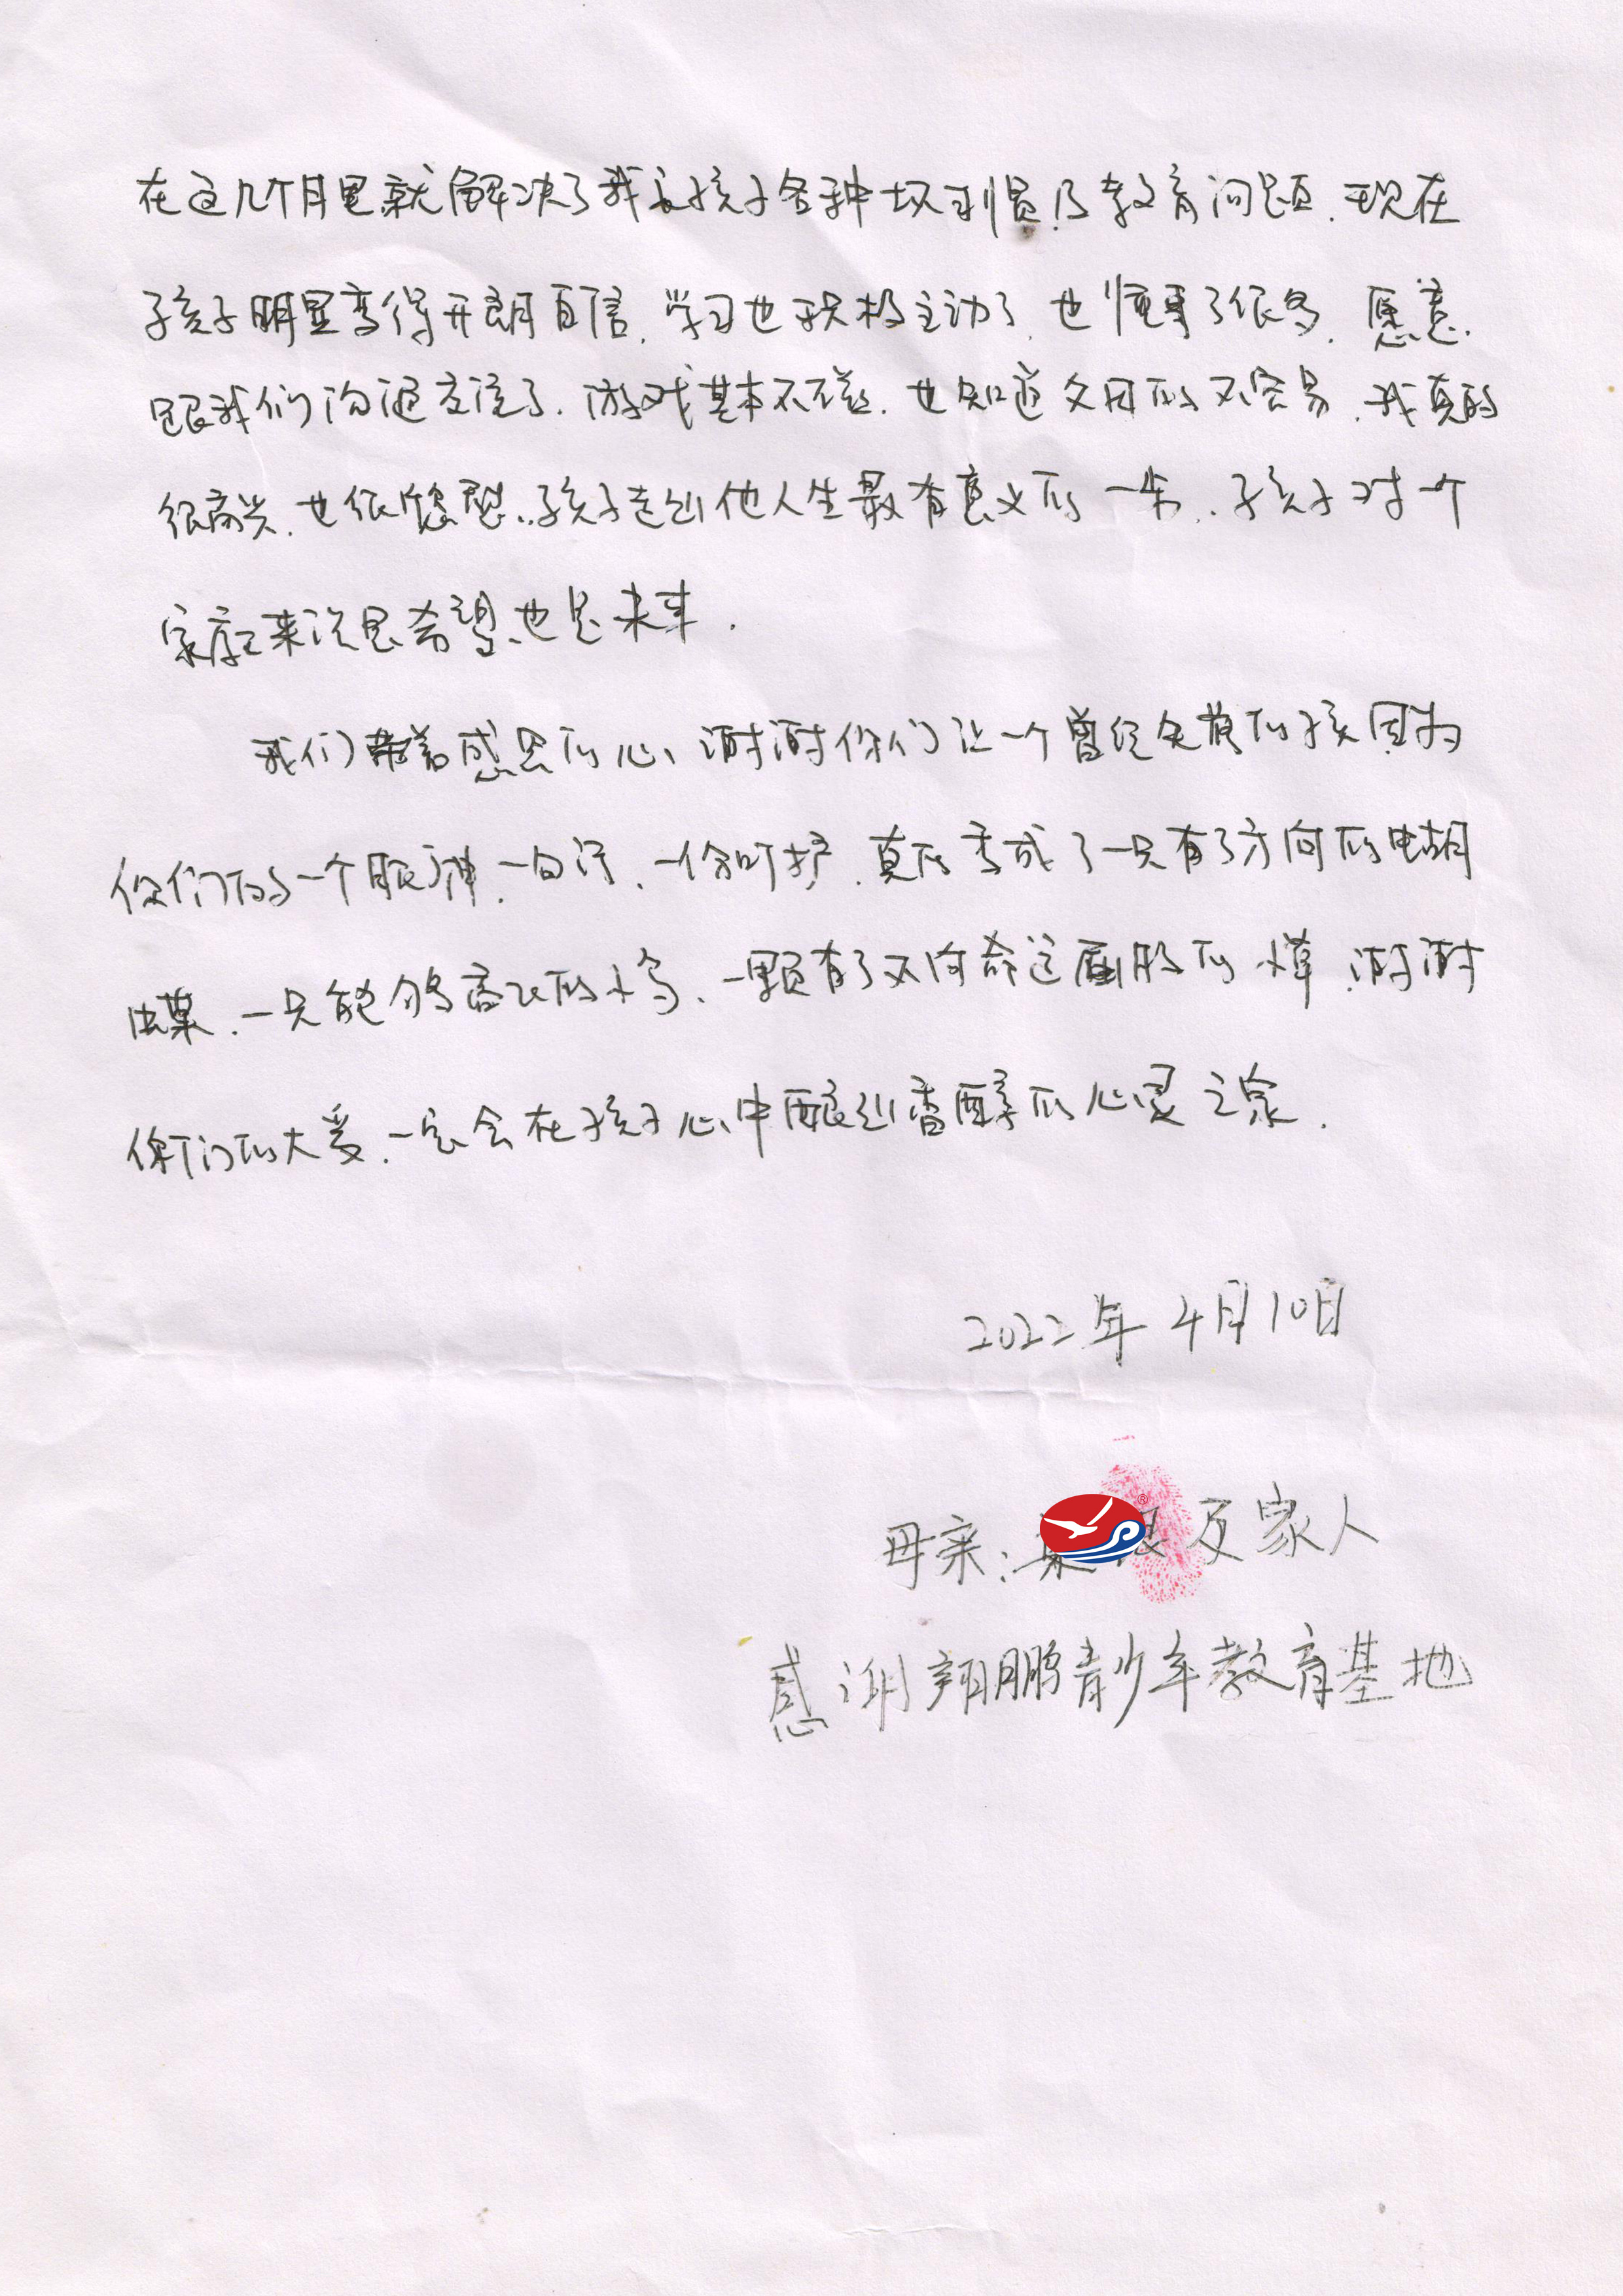 在这几个月里就解决了我家孩子各种坏习惯及教育问题.现在
孩子明显变得开朗自信.学习也积极主动了.也懂事了很多.愿意.
跟我们沟通交流了.游戏基本不碰.也知道父母的不容易.我真的
很高兴.也很欣慰..孩子走出他人生最有意义的一步.孩子对一个
家庭来说是希望也是未来.
我们带着感恩的心、谢谢你们让一个曾经失落的孩因为
你们的一个眼神.一句话.一份呵护.真的变成了一只有了方向的蝴
蝶.一只能够高飞的小鸟、一颗有了不向命运屈服的小草.谢谢
你们的大爱.一定会在孩子心中酿出香醇的心灵之泉.
2022年4月10日
母亲: 及家人
感谢翔鹏青少年教育基地